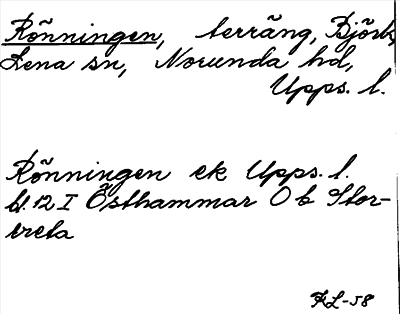 Rönningen, terräng, Björk,
Lena sn, Norunda hd,
Upps. l.
Rönningen ek Upps. l.
bl. 12 I Östhammar O b Stor-
vreta
KL-58